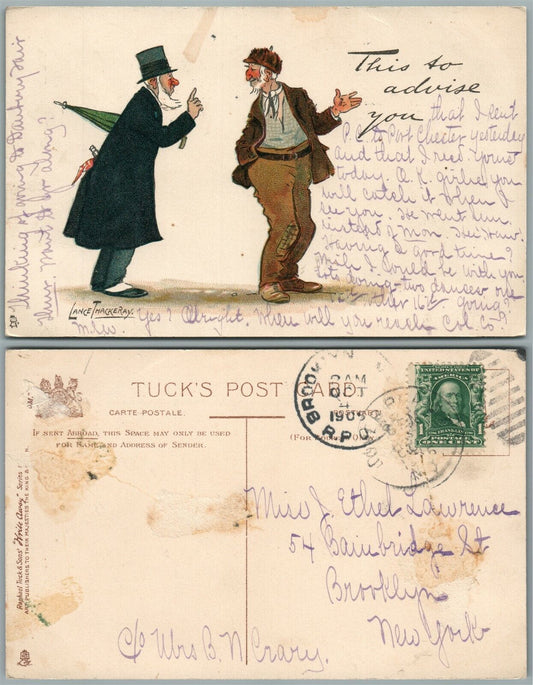 This to
advise
you that I sent
P.C. to Port Chester yesterday
and that I rec'd yours
today. O.K. girlie you
will catch it when I
see you.
instead of Mon.
Having a good time?
Wish I could be with you
two dances
going?
Yes? Alright. When will you reach Col. Co-?
Thinking of going to Danbury Fair
Thurs. Want to go along?
LANCE THACKERAY.
TUCK'S POST CARD
CARTE POSTALE.
IF SENT ABROAD, THIS SPACE MAY ONLY BE USED
FOR NAME AND ADDRESS OF SENDER.
(FOR
BROOKLYN
AM
1905
R.P.O.
UNITED STATES OF
AMERICA
FRANKLIN
POSTAGE
ONE CENT
1
Raphael Tuck & Sons' "Write Away" Series
ART PUBLISHERS TO THEIR MAJESTIES THE KING &
Miss J. Ethel Lawrence
54 Bainbridge St
Brooklyn
New York
C/o Mrs B. N Crary.